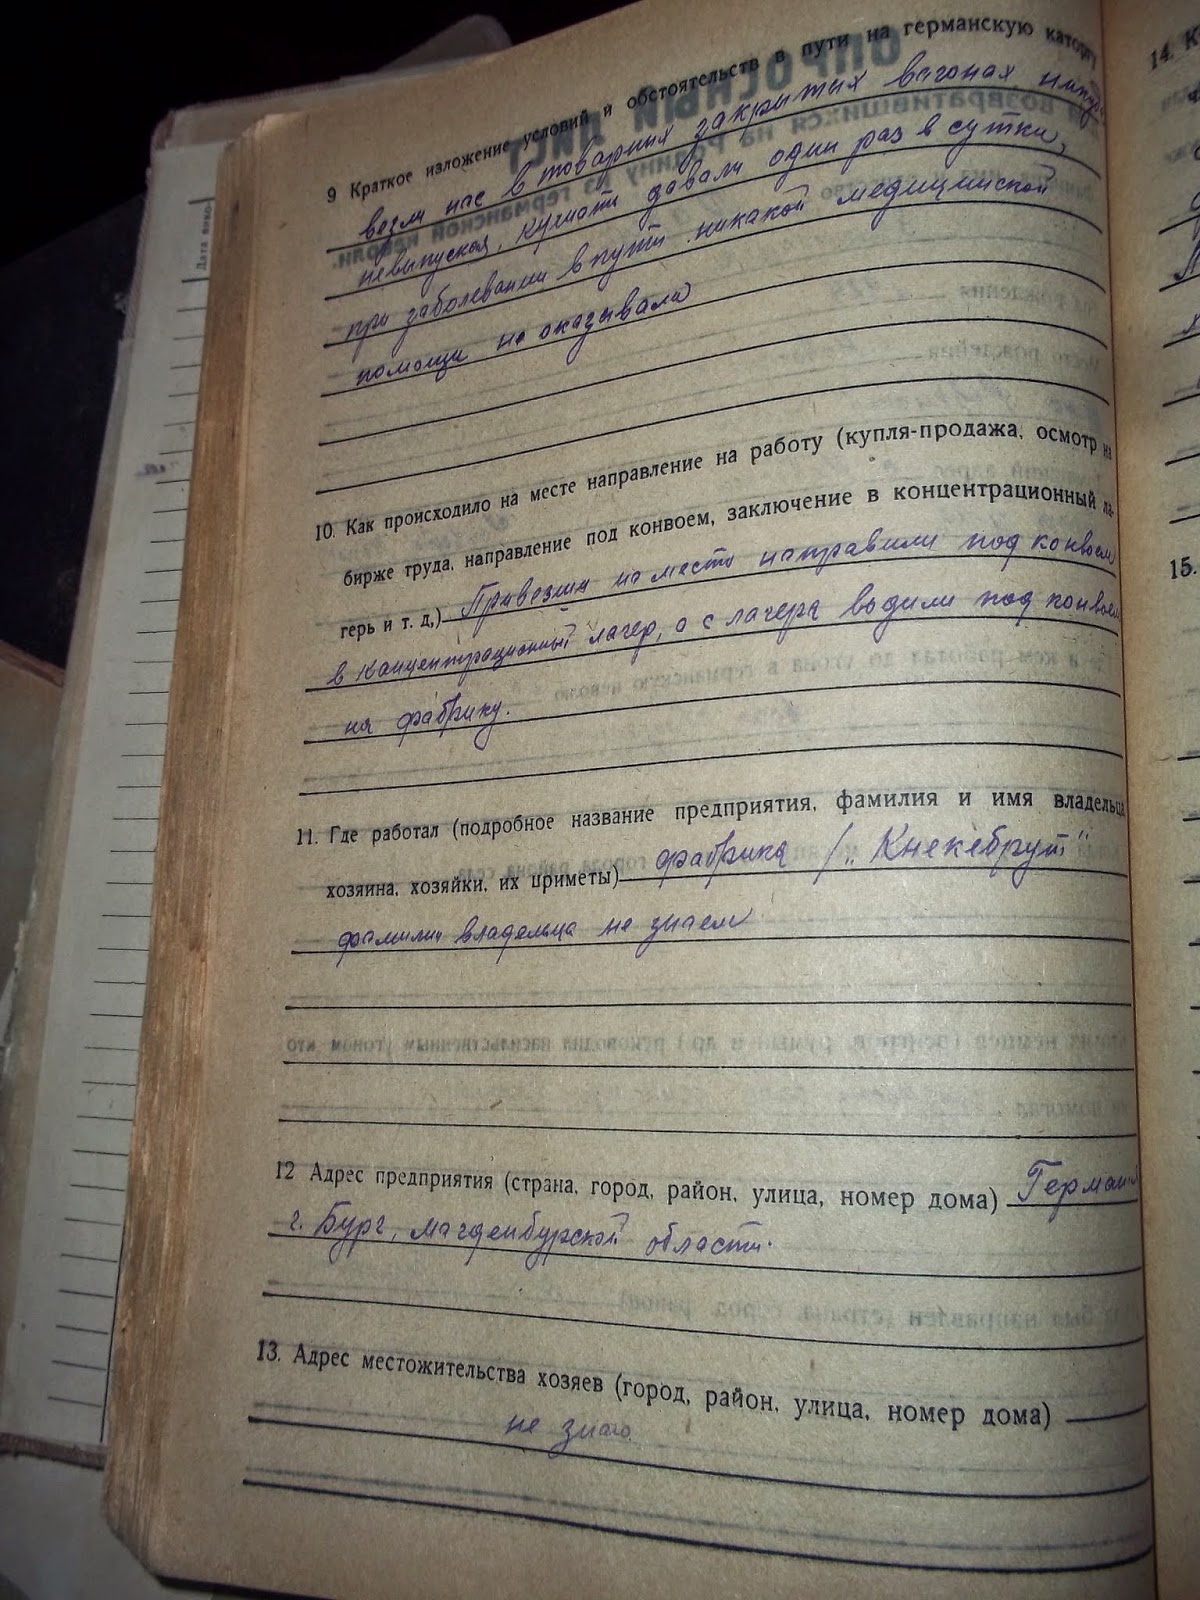 9 Краткое изложение условий и обстоятельств в пути на германскую каторгу
везли нас в товарных закрытых вагонах никуда
невыпуская, кушать давали один раз в сутки,
при заболевании в пути никакой медицинской
помощи не оказывали
10. Как происходило на месте направление на работу (купля-продажа, осмотр на
бирже труда, направление под конвоем, заключение в концентрационный ла-
герь и т. д,) Привезли на место направили под конвоем
в концентрационный лагер, а с лагера водили под конвоем
на фабрику.
11. Где работал (подробное название предприятия, фамилия и имя владельца
хозяина, хозяйки, их приметы) фабрика /„Кнекебрут"
фамилии владельца не знаем
12 Адрес предприятия (страна, город, район, улица, номер дома) Герман
г. Бург, Магденбурской области.
13. Адрес местожительства хозяев (город, район, улица, номер дома)
не знаю
Дата
14. К
15.